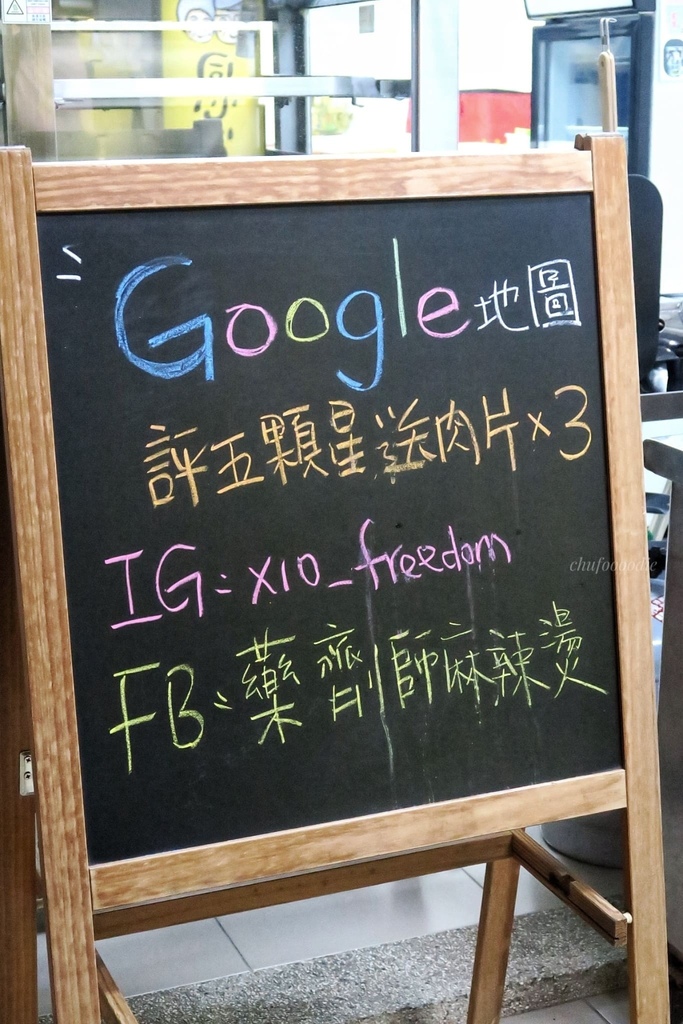 Google地圖
評五顆星送肉片×3
IG:x10_freedom
FB:藥劑師麻辣燙
chufoooodie